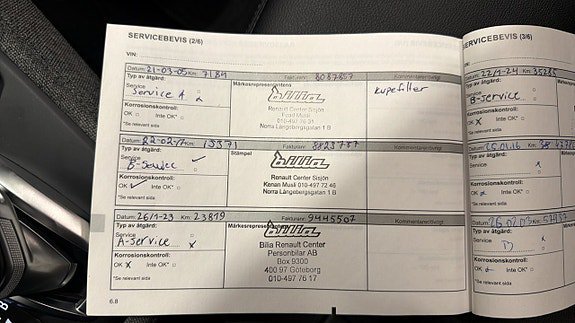 SERVICEBEVIS (2/6)
VIN:
Datum: 21-03-05 Km: 7184 Fakturanr: 8087857 Kommentar/övrigt
Typ av åtgärd: Märkesrepresentantens
Service
Service A x kupefilter
bilia
Korrosionskontroll: Renault Center Sisjön
OK Inte OK*
010-497 76 31
*Se relevant sida Norra Långebergsgatan 1 B
Datum: Km: 15371 Fakturanr: Kommentar/övrigt
Typ av åtgärd: Stämpel
Service
B-Service
bilia
Korrosionskontroll: Renault Center Sisjön
OK Inte OK* Kenan Musli 010-497 72 46
*Se relevant sida Norra Långebergsgatan 1 B
Datum: 26/1-23 Km: 23819 Fakturanr: 9445507 Kommentar/övrigt
Typ av åtgärd:
Service
A-Service x
bilia
Bilia Renault Center
Personbilar AB
Korrosionskontroll: Box 9300
OK x Inte OK* 400 97 Göteborg
*Se relevant sida 010-497 76 17
6.8
SERVICEBEVIS (3/6)
VIN:
Datum: 22/1-24 Km:
Typ av åtgärd:
Service
B-Service
Korrosionskontroll:
OK x Inte OK*
*Se relevant sida
Datum: Km:
Typ av åtgärd:
Service x
Korrosionskontroll:
OK Inte OK*
*Se relevant sida
Datum: Km:
Typ av åtgärd:
Service x
Korrosionskontroll:
OK Inte OK*
*Se relevant sida